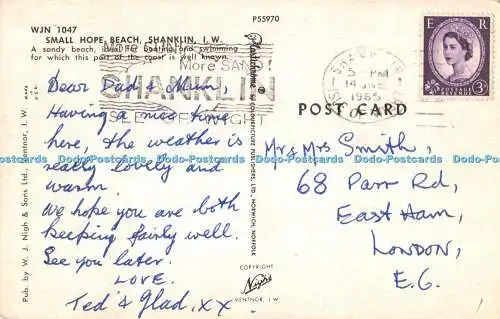 WJN 1047
P55970
SMALL HOPE BEACH, SHANKLIN, I.W.
A sandy beach, ideal for boating and swimming
for which this part of the coast is well known.
More SUN
More SAND
SHANKLIN
Dear Dad & Mum,
Having a nice time
here, the weather is
really lovely and
warm.
We hope you are both
keeping fairly well.
See you later.
LOVE.
Ted & Glad. xx
Pub. by W. J. Nigh & Sons Ltd., Ventnor, I.W.
COPYRIGHT
Nigh's
VENTNOR, I.W.
5 PM
14 JNE
1965
E R
POSTAGE
REVENUE
3D
POST CARD
Mr & Mrs Smith,
68 Parr Rd,
East Ham,
LONDON,
E.6.
Dodo-Postcards Dodo-Postcards Dodo-Postcards Dodo-Postcards Dodo-Postcards Dodo-Postcards